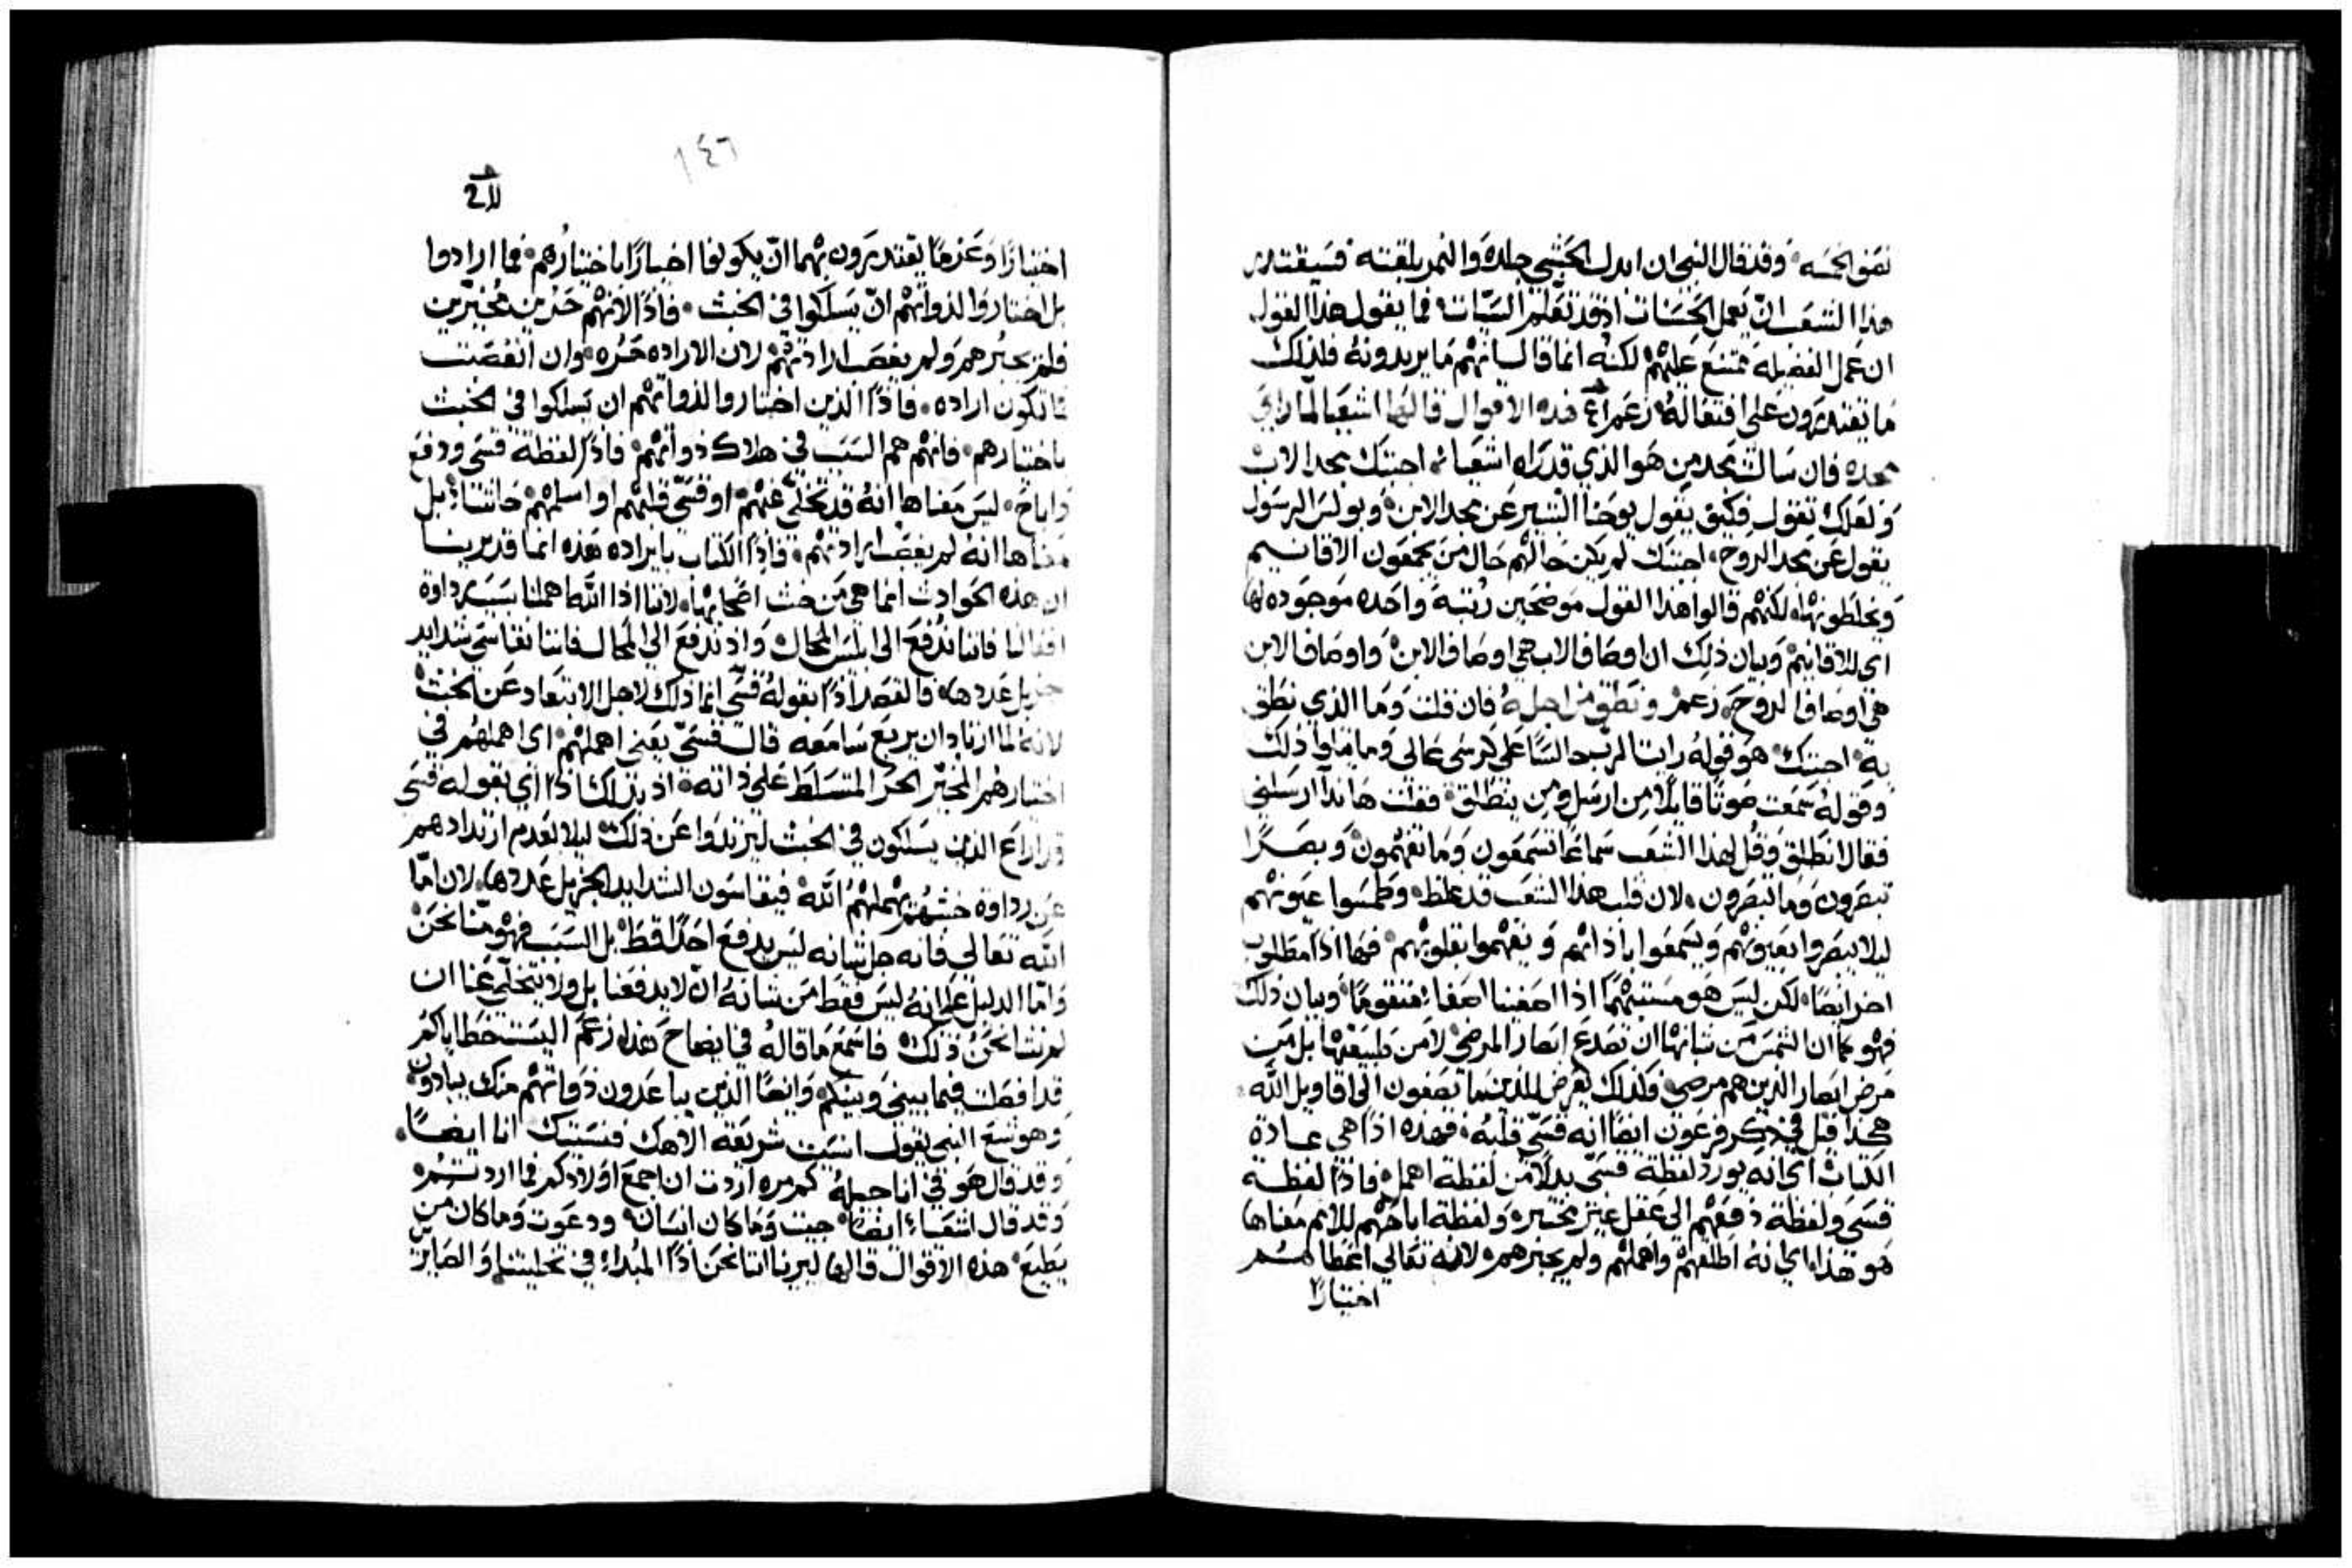 نقمو الحسه وقد قال النبي ان ابدل الحبشي جلده والنمر بلقته فسيقتدر
هذا الشعب ان يعمل الحسنات اذ قد تعلم السيات فما يقول هذا القول
ان عمل الفضيله ممتنع عليهم لكنه انما قال انهم ما يريدونه فلذلك
ما يقتدرون على افتعاله زعم هذه الاقوال قالها اشعيا لما راي
مجده فان سالت مجد من هو الذي قد راه اشعيا اجبتك مجد الاب
ولعلك تقول فكيف يقول يوحنا البشير عن مجد الابن وبولس الرسول
يقول عن مجد الروح اجبتك لم يكن حالهم حال من يجمعون الاقانيم
ويخلطونها لكنهم قالوا هذا القول موضحين رتبة واحده موجوده لها
اي للاقانيم وبيان ذلك ان اوصاف الاب هي اوصاف الابن واوصاف الابن
هي اوصاف الروح زعم ونطق من اجله فان قلت وما الذي نطق
به اجبتك هو قوله رايت الرب جالسا على كرسي عالي وما يتلوا ذلك
وقوله سمعت صوتا قايلا من ارسل ومن ينطلق فقلت هانذا ارسلني
فقال انطلق وقل لهذا الشعب سماعا تسمعون وما تفهمون وبصرا
تبصرون وما تبصرون لان قلب هذا الشعب قد غلظ وطمسوا عيونهم
ليلا يبصروا بعيونهم ويسمعوا باذانهم ويفهموا بقلوبهم فها اذا مطلوب
اخر ايضا لكن ليس هو مستبهما اذا اصغينا اصغاء متقوما وبيان ذلك
فهو كما ان الشمس من شانها ان تصدع ابصار المرضى لا من طبيعتها بل من
مرض ابصار الذين هم مرضى وكذلك يعرض للذين ما يصغون الى اقاويل الله
هكذا قيل في ذكر فرعون ايضا انه قسى قلبه فهذه اذا هي عادة
الكتاب اي انه يورد لفظة قسى بدلا من لفظة اهمل فاذا لفظة
قسى ولفظة دفعهم الى عقل غير مختبره ولفظة اباحهم للامم معناها
هو هذا اي انه اطلقهم واهملهم ولم يجبرهم لانه تعالى اعطاهم
اختيارا
١٤٦
اختيارا وعزما يقتدرون بهما ان يكونوا اخيارا باختيارهم فما ارادوا
بل اختاروا لذواتهم ان يسلكوا في الخبث فاذا لانهم حذرين مخيرين
فلم يجبرهم ولم يغصب ارادتهم لان الاراده حره وان انغصبت
فما تكون اراده فاذا الذين اختاروا لذواتهم ان يسلكوا في الخبث
باختيارهم فانهم هم السبب في هلاك ذواتهم فاذا لفظة قسى ودفع
واباح ليس معناها انه قد تخلى عنهم او قسى قلبهم او اسلمهم حاشا بل
معناها انه لم يغصب ارادتهم فاذا الكتاب بايراده هذه انما قد يرينا
ان هذه الحوادث انما هي من خبث اصحابها لاننا اذا الله اهملنا بسبب رداوة
افعالنا فاننا ندفع الى ابليس المحال واذ ندفع الى المحال فاننا نقاسي شدايد
جزيل عددها فالقصد اذا بقوله قسى انما ذلك لاجل الابتعاد عن الخبث
لانه لما ارتاد ان يريع سامعه قال قسى يعني اهملهم اي اهملهم في
اختيارهم المخير الحر المتسلط على ذاته اذ بذلك اذا اي بقوله قسى
قد اراع الذين يسلكون في الخبث ليرتدوا عن ذلك ليلا لعدم ارتدادهم
عن رداوة خبثهم يهملهم الله فيقاسون الشدايد الجزيل عددها لان اما
الله تعالى فانه جل شانه ليس يدفع احدا قط بل السبب فهو منا نحن
واما الدليل على انه ليس فقط من شانه ان لا يدفعنا بل ولا يتخلى عنا ان
لم نشا نحن ذلك فاسمع ما قاله في ايضاح هذا زعم اليست خطاياكم
قد افصلت فيما بيني وبينكم وايضا الذين يباعدون ذواتهم منك يبادون
وهوشع النبي يقول انسيت شريعة الاهك فنسيتك انا ايضا
وقد قال هو في انجيله كم مره اردت ان اجمع اولادكم فما اردتم
وقد قال اشعياء ايضا جيت وما كان انسان ودعوت وما كان من
يطيع هذه الاقوال قالها ليرينا اننا نحن اذا المبداء في تخليتنا والصاير